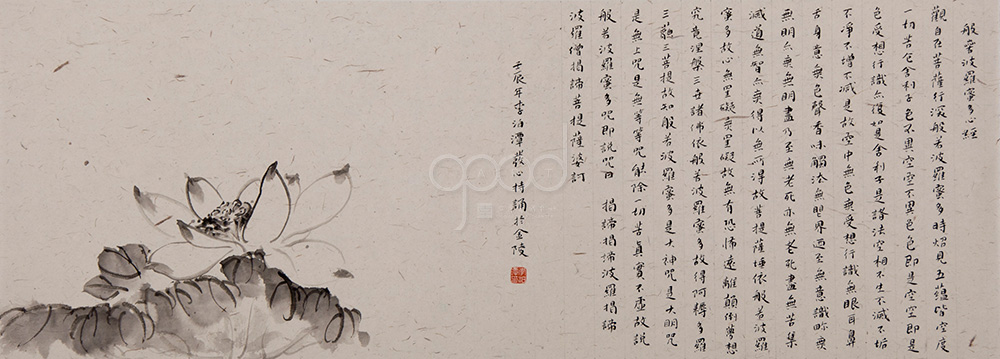 般若波羅蜜多心經
觀自在菩薩行深般若波羅蜜多時照見五蘊皆空度
一切苦厄舍利子色不異空空不異色色即是空空即是
色受想行識亦復如是舍利子是諸法空相不生不滅不垢
不淨不增不減是故空中無色無受想行識無眼耳鼻
舌身意無色聲香味觸法無眼界迺至無意識界無
無明亦無無明盡乃至無老死亦無老死盡無苦集
滅道無智亦無得以無所得故菩提薩埵依般若波羅
蜜多故心無罣礙無罣礙故無有恐怖遠離顛倒夢想
究竟涅槃三世諸佛依般若波羅蜜多故得阿耨多羅
三藐三菩提故知般若波羅蜜多是大神咒是大明咒
是無上咒是無等等咒能除一切苦真實不虛故說
般若波羅蜜多咒即說咒曰 揭諦揭諦波羅揭諦
波羅僧揭諦菩提薩婆訶
壬辰年李泊潭發心持誦於金陵